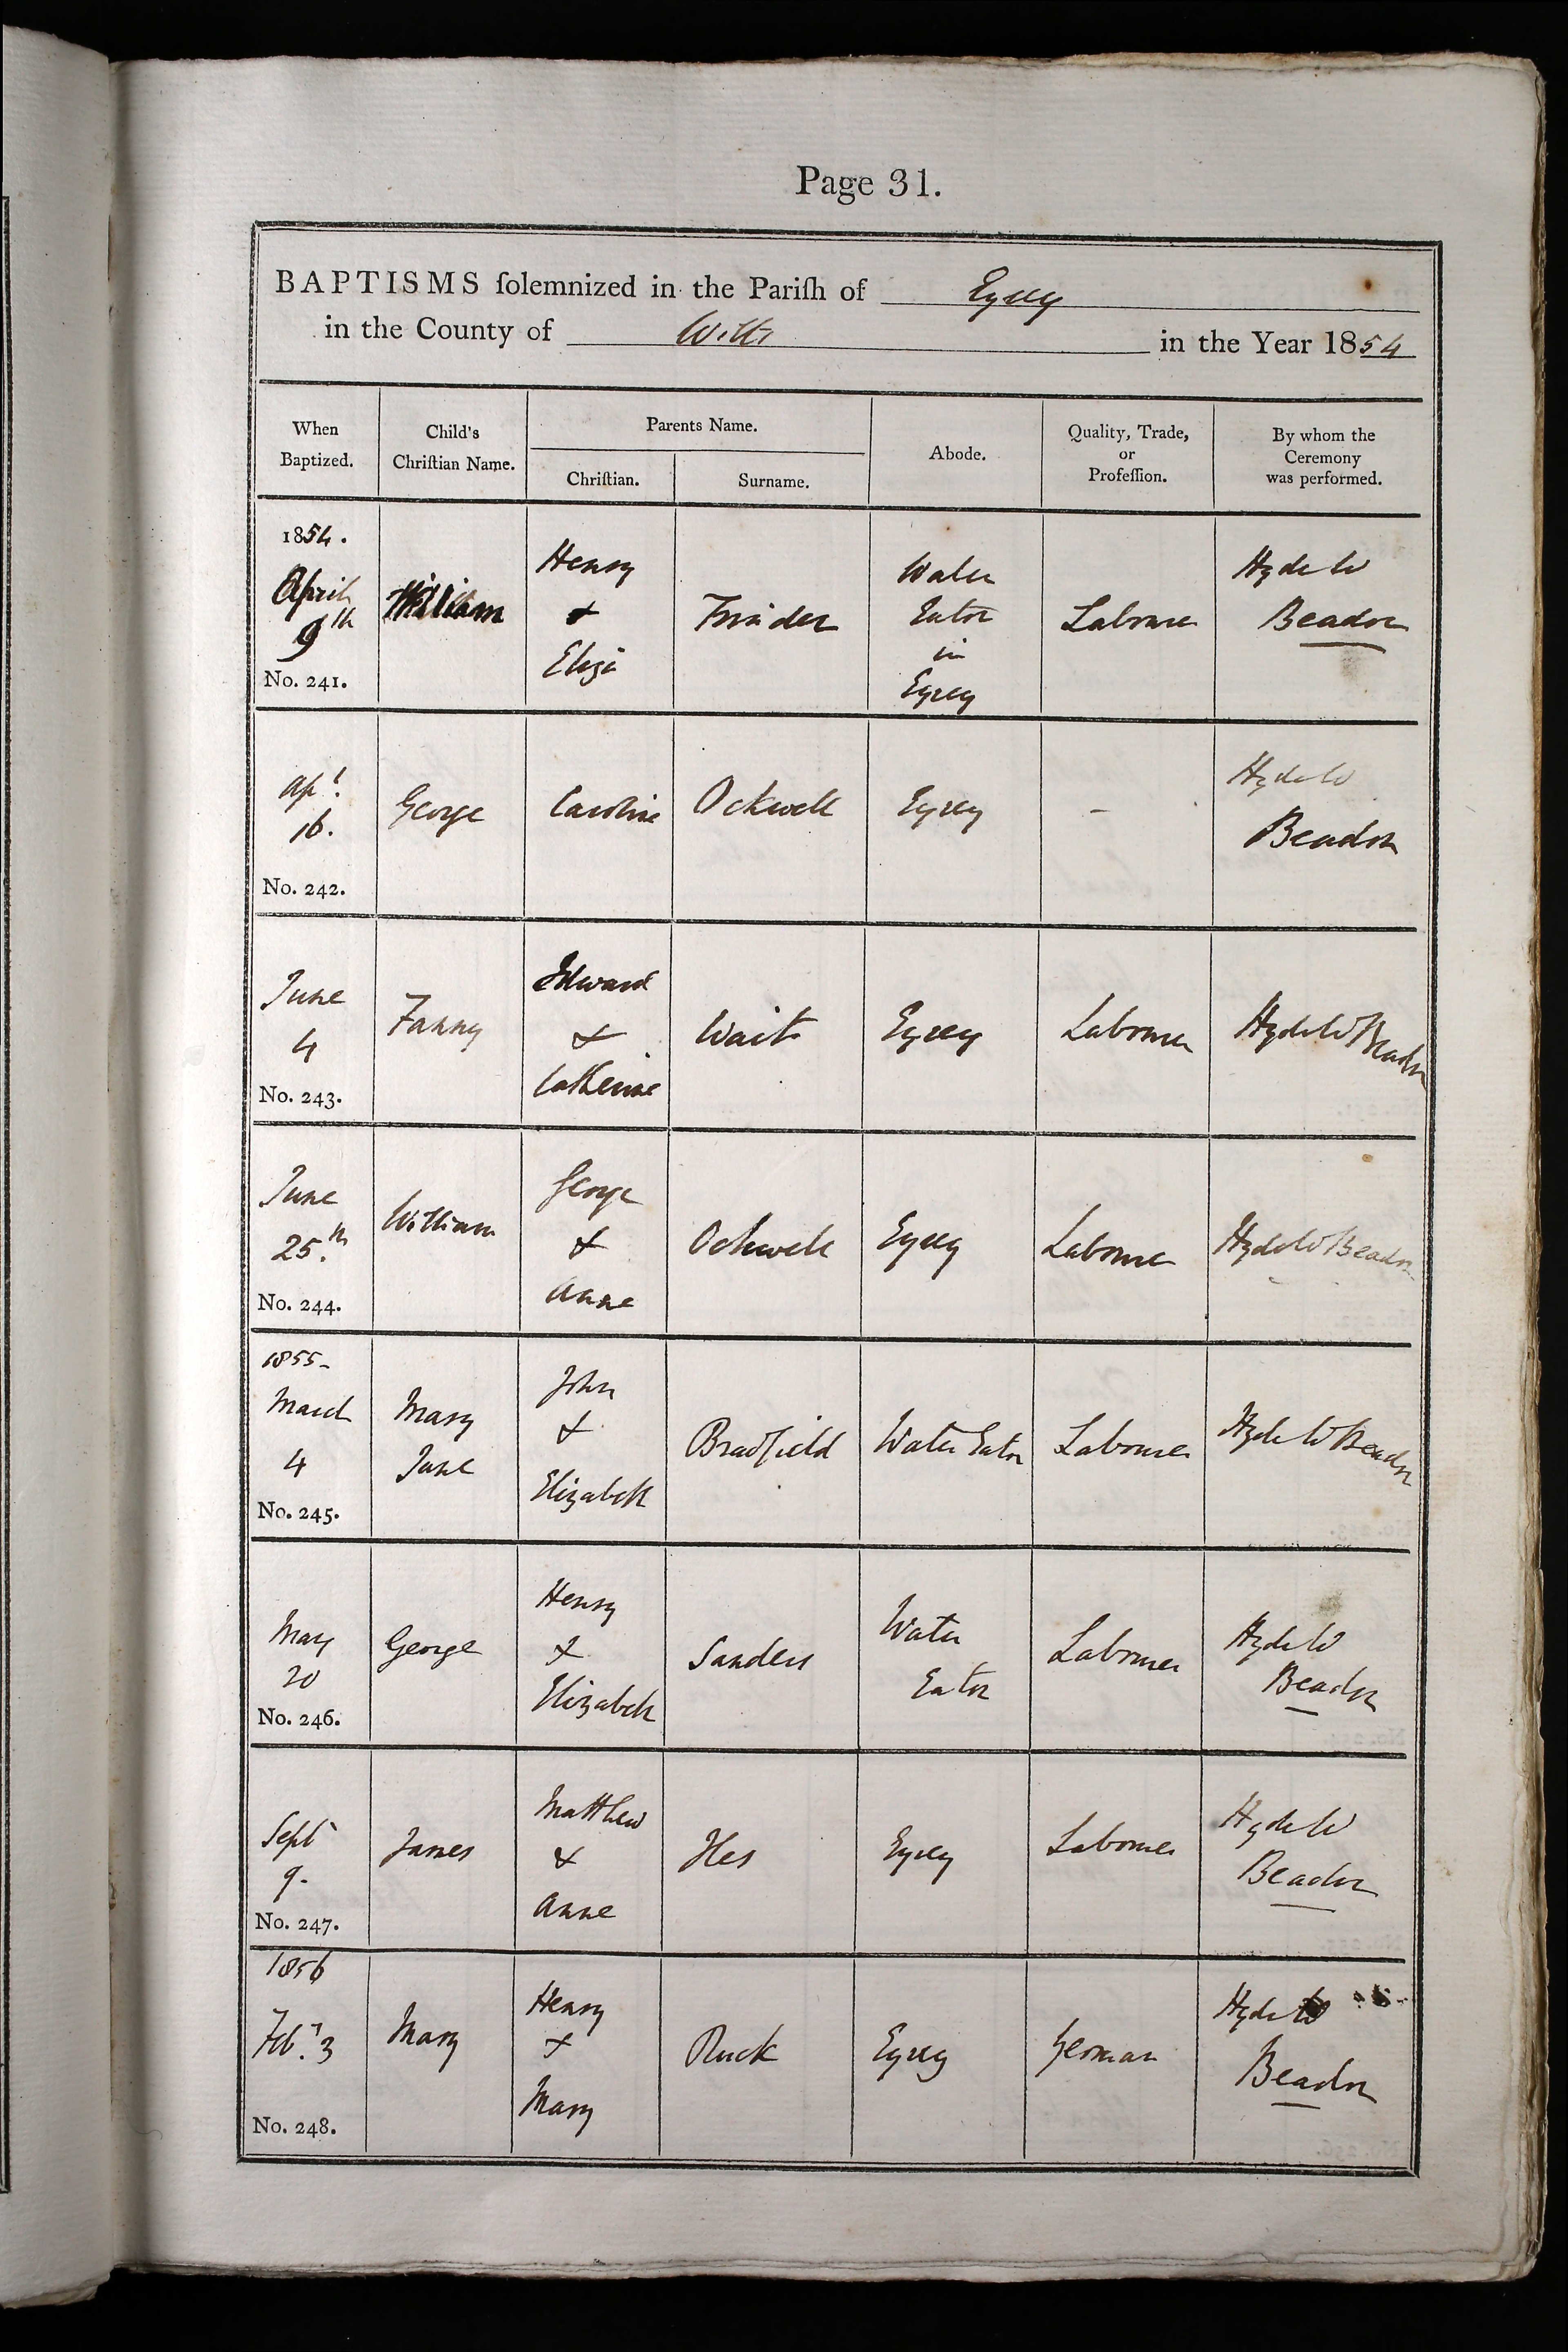 Page 31.
BAPTISMS ſolemnized in the Pariſh of Eysey
in the County of Wilts in the Year 1854
When Baptized.
Child's Chriſtian Name.
Parents Name.
Chriſtian.
Surname.
Abode.
Quality, Trade, or Profeſſion.
By whom the Ceremony was performed.
1854.
April
9th
No. 241.
William
Henry
&
Eliza
Trinder
Water
Eaton
in
Eysey
Labourer
Hyde W
Beadon
Apl.
16.
No. 242.
George
Caroline
Ockwell
Eysey
-
Hyde W
Beadon
June
4
No. 243.
Fanny
Edward
&
Catherine
Wait
Eysey
Labourer
Hyde W Beadon
June
25.th
No. 244.
William
George
&
Anne
Ockwell
Eysey
Labourer
Hyde W Beadon
1855-
March
4
No. 245.
Mary
Jane
John
&
Elizabeth
Bradfield
Water Eaton
Labourer
Hyde W Beadon
May
20
No. 246.
George
Henry
&
Elizabeth
Sanders
Water
Eaton
Labourer
Hyde W
Beadon
Sept
9-
No. 247.
James
Matthew
&
Anne
Iles
Eysey
Labourer
Hyde W
Beadon
1856
Feb.y 3
No. 248.
Mary
Henry
&
Mary
Ruck
Eysey
Yeoman
Hyde W
Beadon